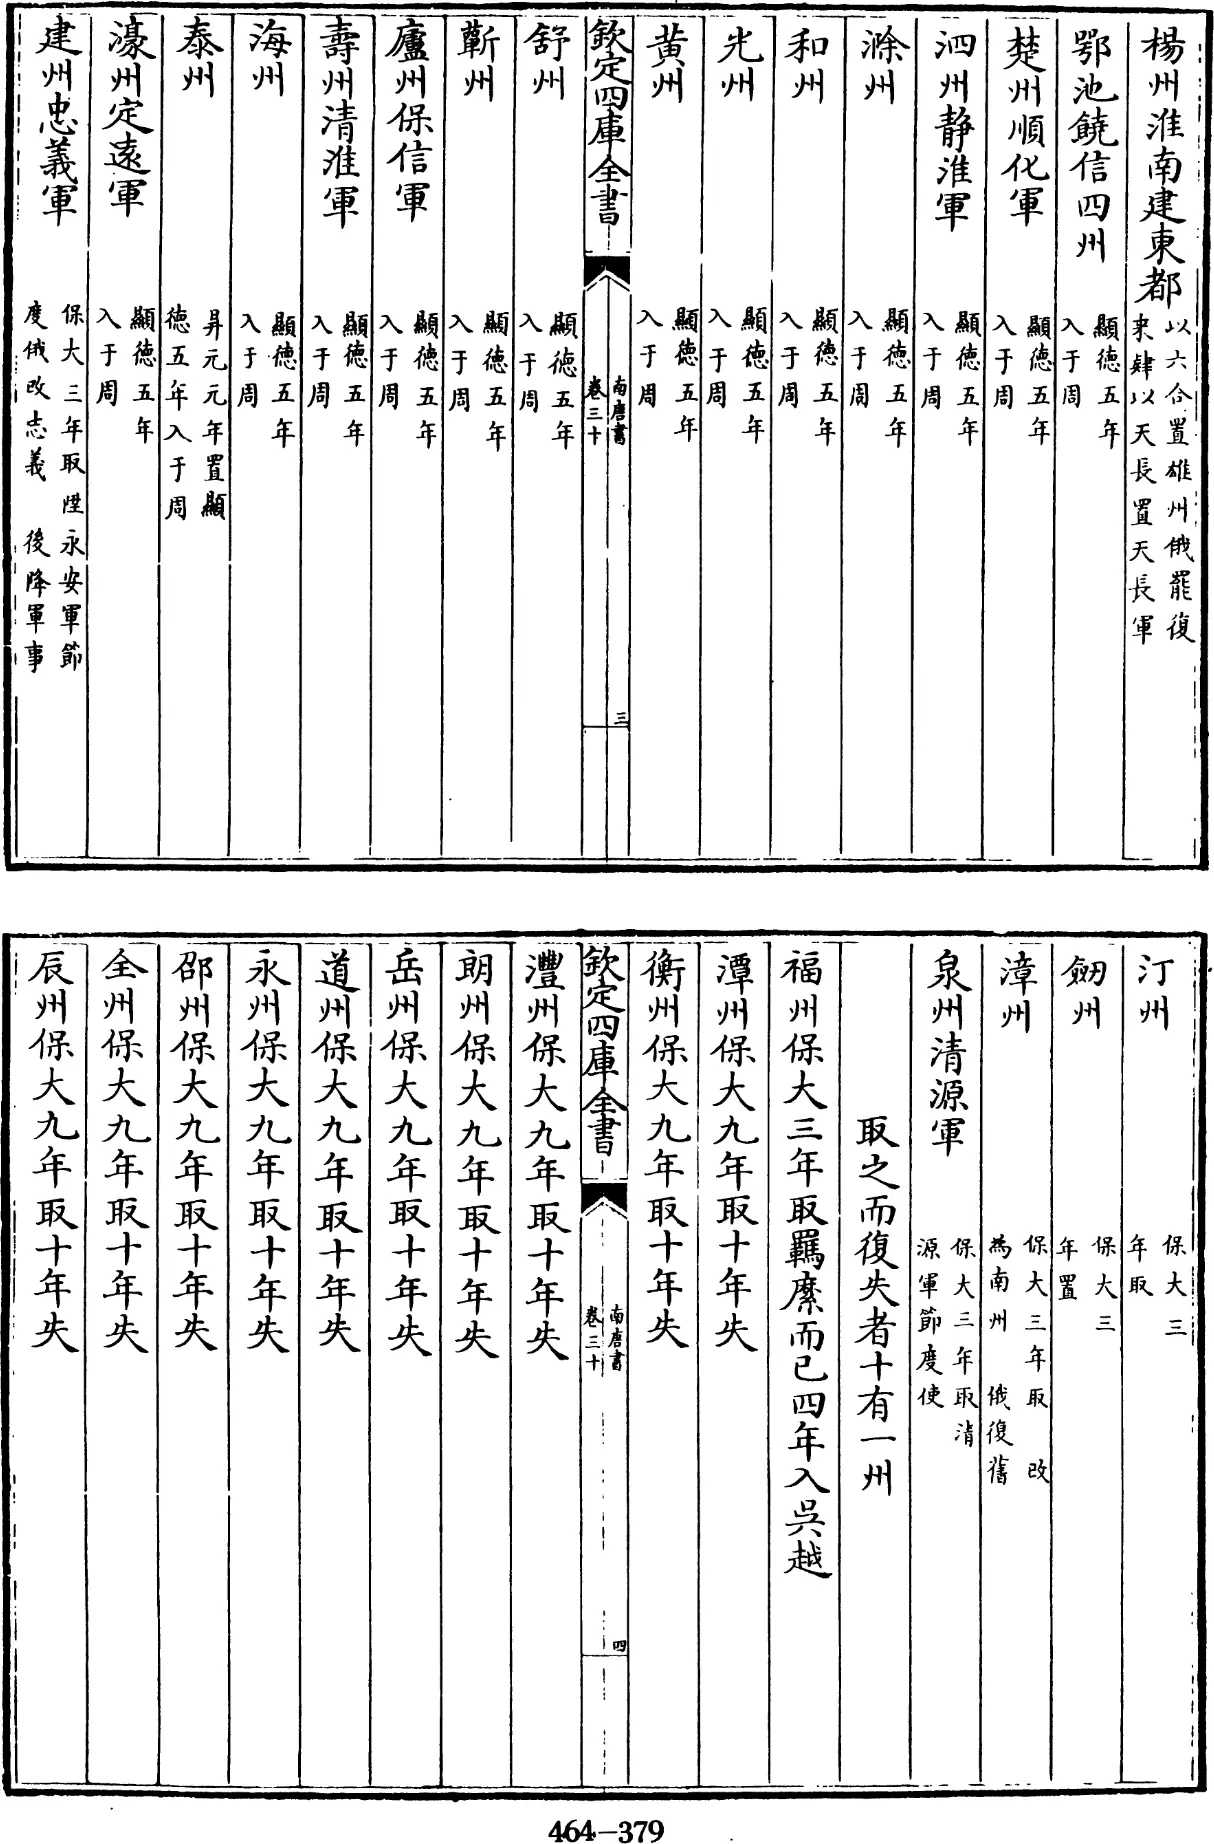 楊州淮南建東都以六合置雄州俄罷復
隶肆以天長置天長軍
鄂池饒信四州顯徳五年
入于周
楚州順化軍顯徳五年
入于周
泗州静淮軍顯徳五年
入于周
滁州顯徳五年
入于周
和州顯徳五年
入于周
光州顯徳五年
入于周
黄州顯徳五年
入于周
欽定四庫全書
南唐書
卷三十
三
舒州顯徳五年
入于周
蘄州顯徳五年
入于周
廬州保信軍顯徳五年
入于周
壽州清淮軍顯徳五年
入于周
海州顯徳五年
入于周
泰州昇元元年置顯
徳五年入于周
濠州定遠軍顯徳五年
入于周
建州忠義軍保大三年取陞永安軍節
度俄改志義 後降軍事
汀州保大三
年取
劒州保大三
年置
漳州保大三年取 改
為南州 俄復舊
泉州清源軍保大三年取清
源軍節度使
取之而復失者十有一州
福州保大三年取羈縻而已四年入呉越
潭州保大九年取十年失
衡州保大九年取十年失
欽定四庫全書
南唐書
卷三十
四
灃州保大九年取十年失
朗州保大九年取十年失
岳州保大九年取十年失
道州保大九年取十年失
永州保大九年取十年失
邵州保大九年取十年失
全州保大九年取十年失
辰州保大九年取十年失
464-379